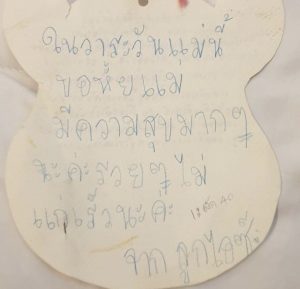 ในวาระวันแม่นี้
ขอห้ัยแม่
มีความสุขมากๆ
นะค่ะรวยๆ ไม่
แก่เร็วนะคะ
จาก ลูกไอซ์